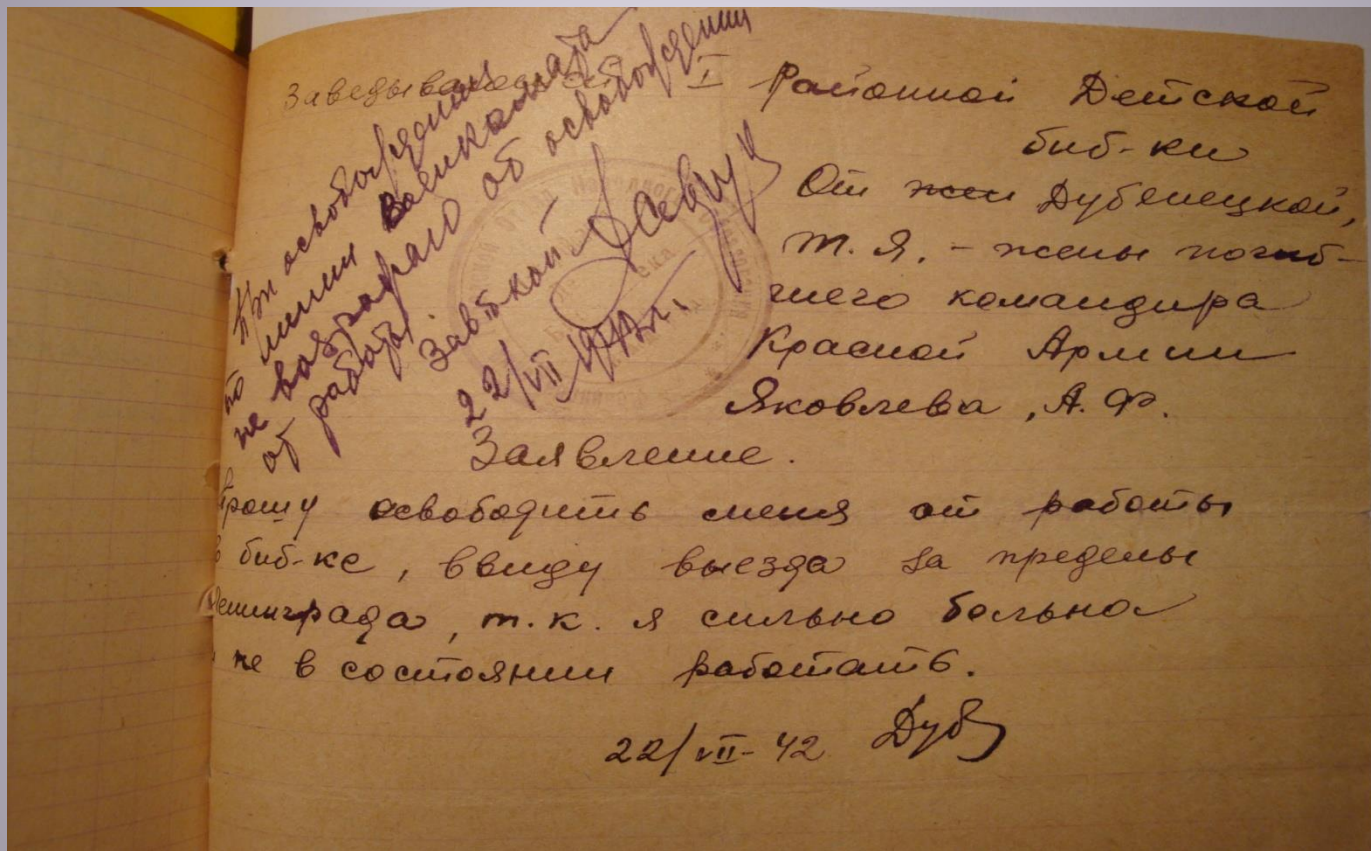 Заведывающей I Районной Детской
биб-ки
От жен Дубенецкой,
Т. Я. - жены погиб-
шего командира
Красной Армии
Яковлева, А. Ф.
Заявление.
Прошу освободить меня от работы
в биб-ке, ввиду выезда за пределы
Ленинграда, т. к. я сильно больна
и не в состоянии работать.
22/VII-42 Дуб
При освобождении
по линии Военкомата
не возражаю об освобождении
от работы.
Зав. б-кой
22/VII 1942 г.